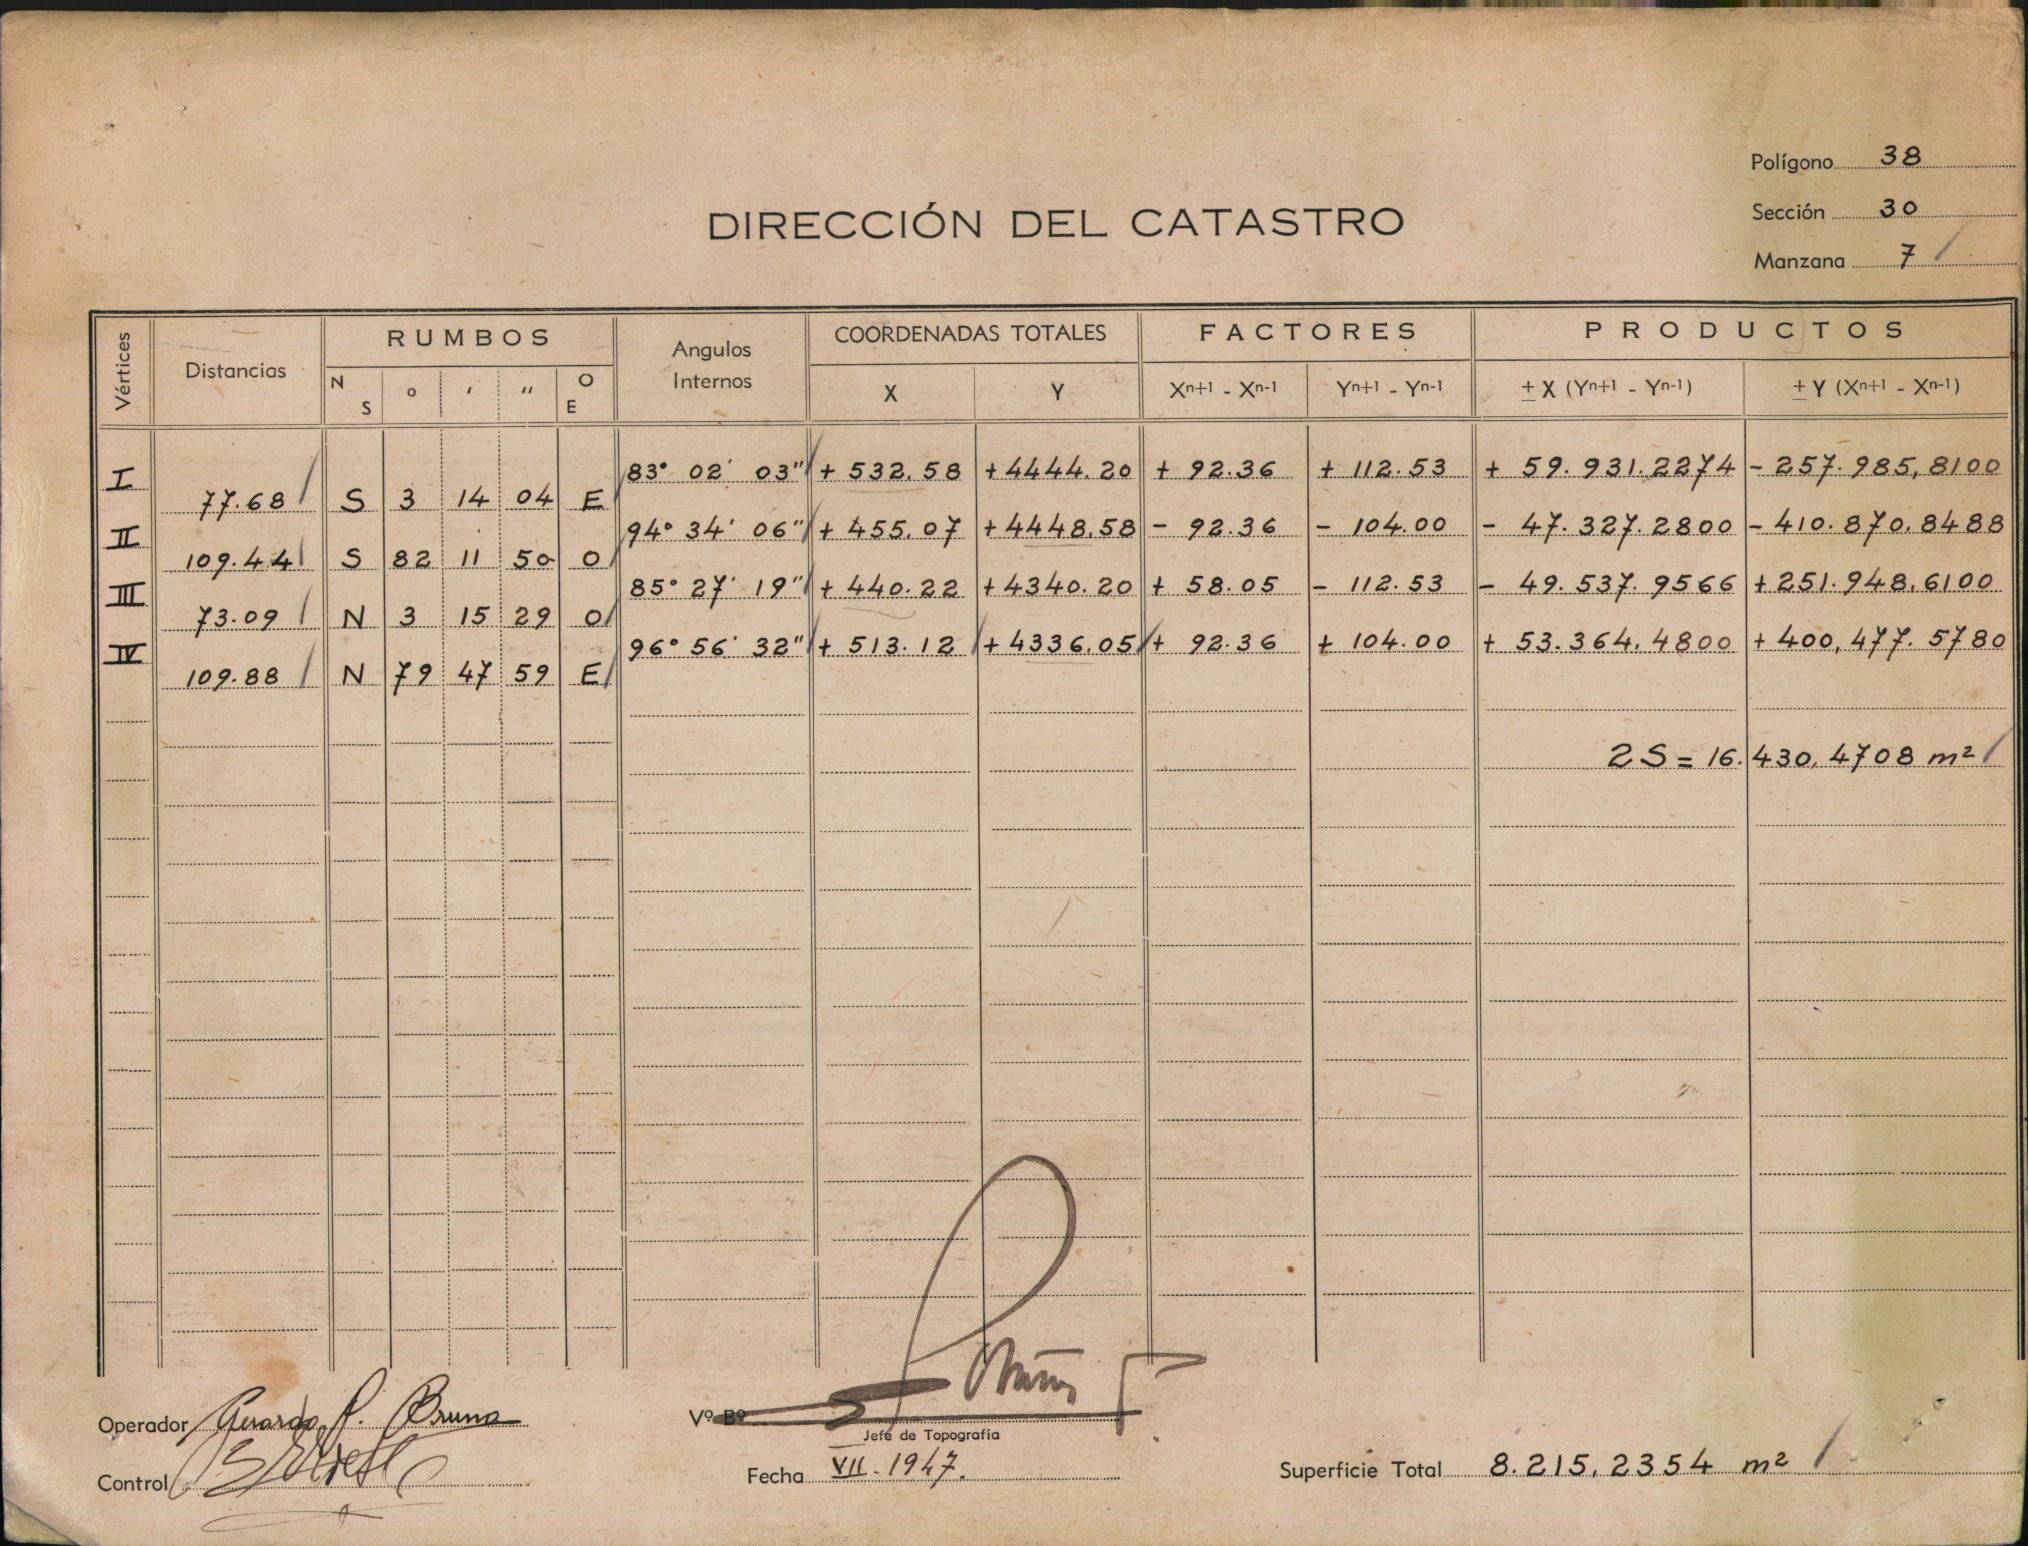 Polígono 38
Sección 30
Manzana 7
DIRECCIÓN DEL CATASTRO
Vértices Distancias RUMBOS Angulos Internos COORDENADAS TOTALES FACTORES PRODUCTOS
N S o ' " O E X Y Xn+1 - Xn-1 Yn+1 - Yn-1 ± X (Yn+1 - Yn-1) ± Y (Xn+1 - Xn-1)
I 83° 02' 03" + 532.58 + 4444.20 + 92.36 + 112.53 + 59.931.2274 - 257.985,8100
77.68 S 3 14 04 E
II 94° 34' 06" + 455.07 + 4448.58 - 92.36 - 104.00 - 47.327.2800 - 410.870.8488
109.44 S 82 11 50 O
III 85° 27' 19" + 440.22 + 4340.20 + 58.05 - 112.53 - 49.537.9566 + 251.948.6100
73.09 N 3 15 29 O
IV 96° 56' 32" + 513.12 + 4336.05 + 92.36 + 104.00 + 53.364.4800 + 400,477.5780
109.88 N 79 47 59 E
2S = 16.430,4708 m²
Operador Gerardo P. Bruno
Vº Bº
Jefe de Topografía
Control
Fecha VII. 1947.
Superficie Total 8.215,2354 m²